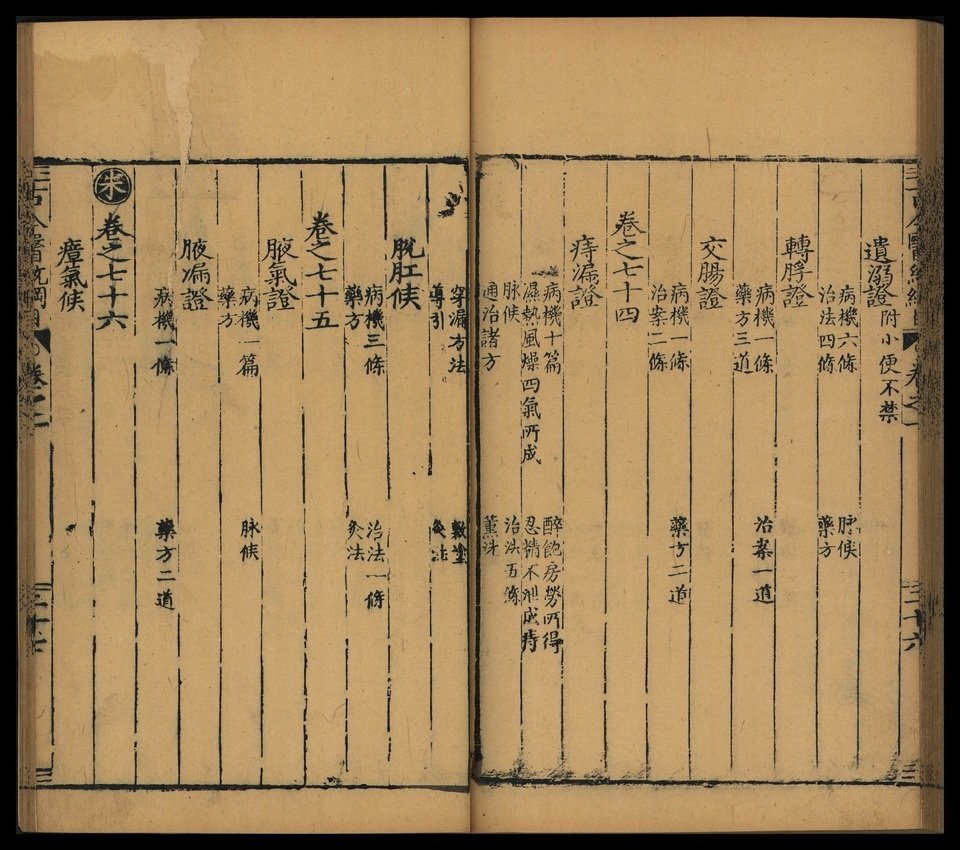 遺溺證附小便不禁
病機六條
脉候
治法四條
藥方
轉脬證
病機一條
治案一道
藥方三道
交腸證
病機一條
藥方二道
治案二條
卷之七十四
痔漏證
病機十篇
醉飽房勞所得
濕熱風燥四氣所成
忍精不泄成痔
脉候
治法五條
通治諸方
薰洗
穿漏方法
敷塗
導引
灸法
脫肛候
病機三條
治法一條
藥方
灸法
卷之七十五
腋氣證
病機一篇
脉候
藥方
腋漏證
病機一條
藥方二道
朱
卷之七十六
瘴氣候